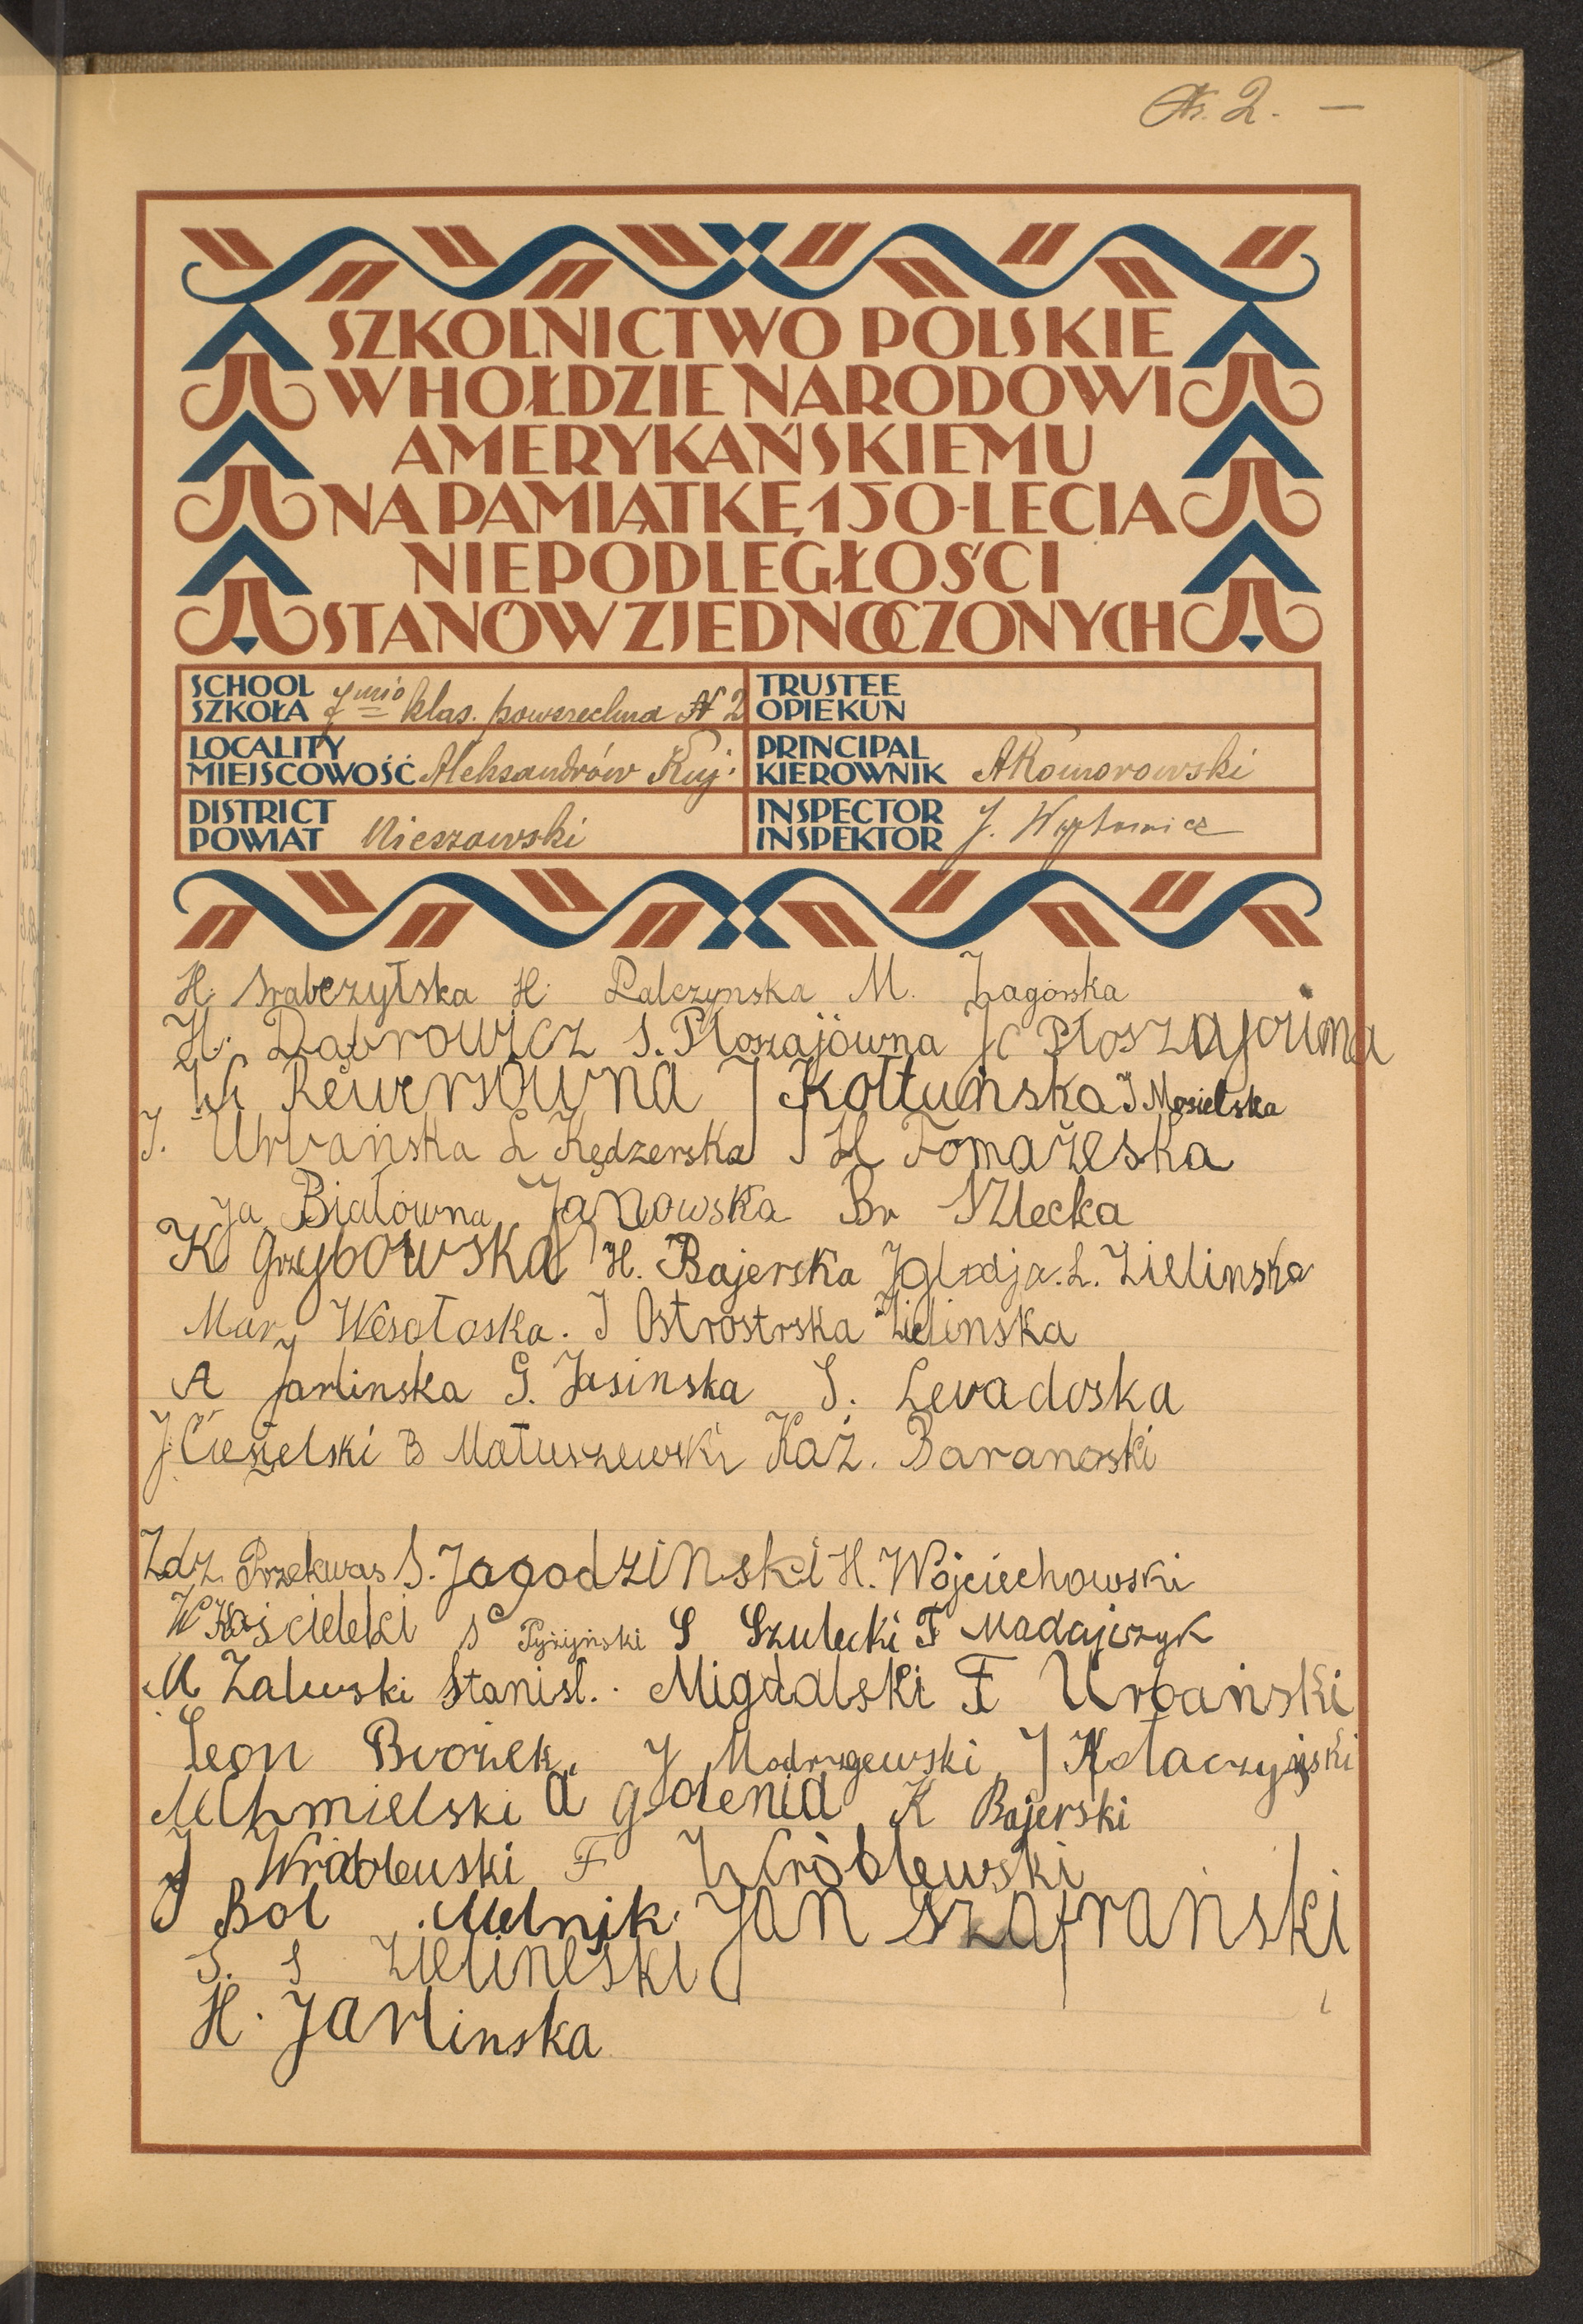 № 2. —
SZKOLNICTWO POLSKIE
W HOŁDZIE NARODOWI
AMERYKAŃSKIEMU
NA PAMIĄTKĘ 150-LECIA
NIEPODLEGŁOŚCI
STANÓW ZJEDNOCZONYCH
SCHOOL
SZKOŁA 7mio klas. powszechna № 2
TRUSTEE
OPIEKUN
LOCALITY
MIEJSCOWOŚĆ Aleksandrów Kuj.
PRINCIPAL
KIEROWNIK A Komorowski
DISTRICT
POWIAT Nieszawski
INSPECTOR
INSPEKTOR J.
H. H. Palczynska M. Zagórska
H. Dąbrowicz S. Płoszajówna K Płoszajówna
W Rewersówna J Kołtuńska J Mosielska
J. Urbańska L Kędzerska H Tomażeska
Ja Białówna Janowska Br Szlecka
K Grzybowska H. Bajerska J Gledja. L. Zielinska
Mary Wesołoska. J Ostrostrska Zielinska
A Jarlinska G. Jasinska S. Levadoska
J. Ciesielski B Matuszewski Kaź. Baranoski
Zdz. Przekwas S. Jagodzinski H. Wojciechowski
W Kościelski S Pyżyński S Szulecki F Madajczyk
M Zaluski Stanisl. Migdalski F Urbański
Leon Bvożek. J Modrzgewski J Kołaczyński
M Chmielski A golenia K Bajerski
J Wróblewski F Wróblewski
J Bol Melnik Jan Szafrański
S. S Zielineski
H. Jarlinska